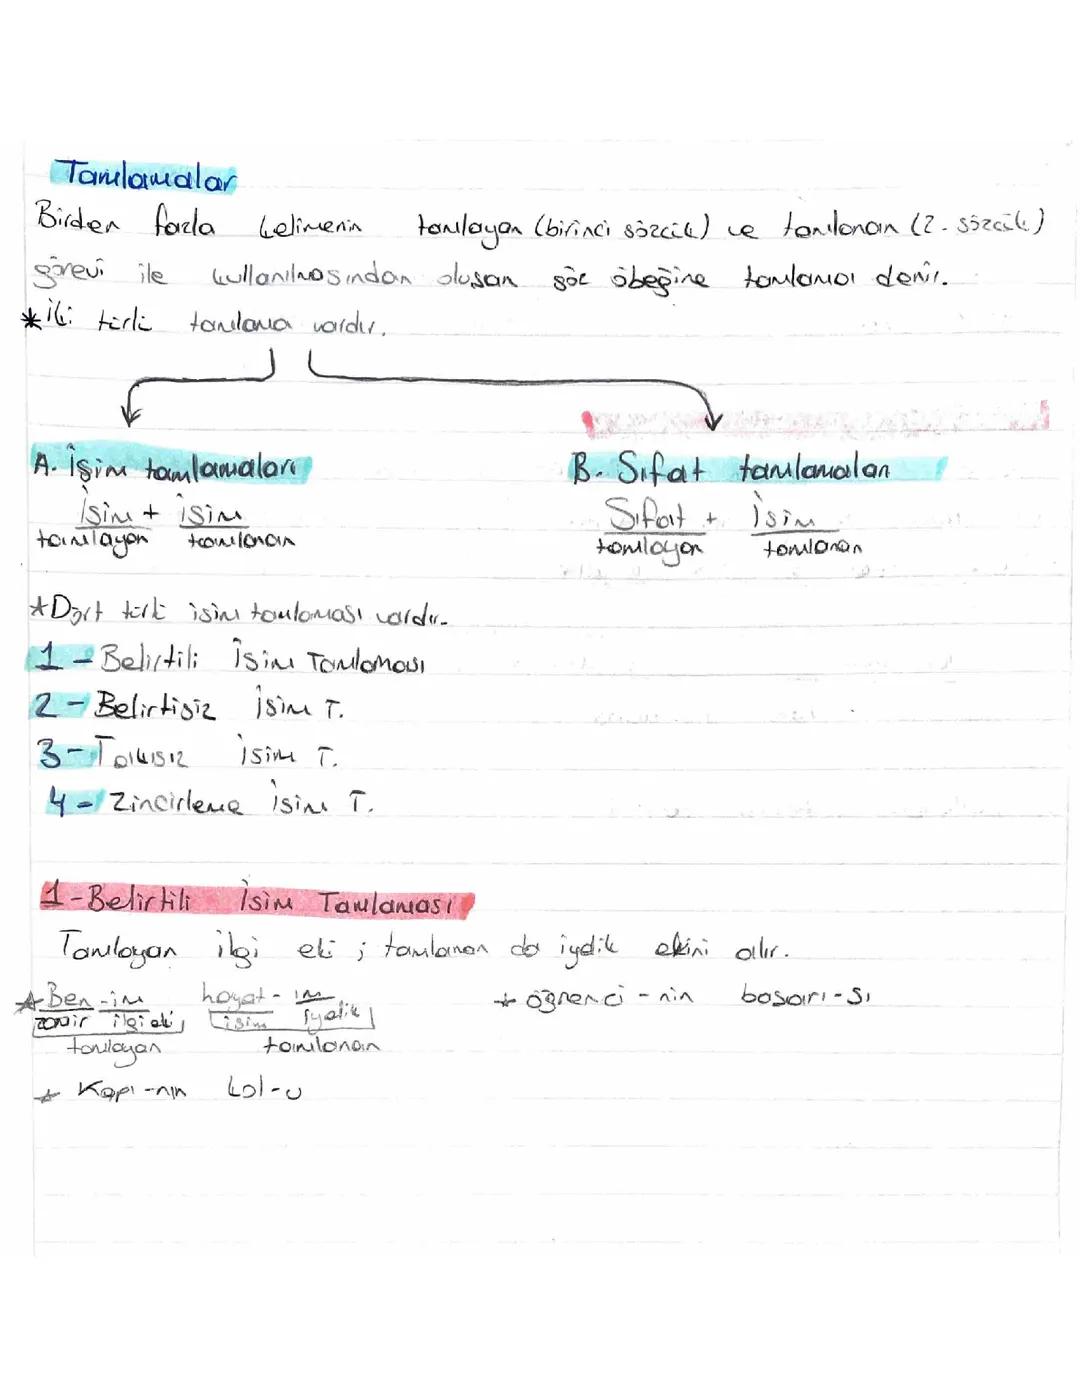 Tamlamalar
Birden fazla kelimenin tamlayan (birinci sözcük) ve tamlanan (2. sözcük)
görevi ile kullanılmasından oluşan söz öbeğine tamlama denir.
*İki türlü tamlama vardır.
A. İsim tamlamaları
B. Sıfat tamlamaları
İsim + isim
Sıfat + İsim
tamlayan tamlanan
tamlayan tamlanan
*Dört türlü isim tamlaması vardır.
1 - Belirtili İsim Tamlaması
2 - Belirtisiz İsim T.
3 - Takısız İsim T.
4 - Zincirleme İsim T.
1 - Belirtili İsim Tamlaması
Tamlayan ilgi eki ; tamlanan da iyelik ekini alır.
*Ben-im hayat-ım * öğrenci-nin başarı-sı
zamir ilgi eki isim iyelik
tamlayan tamlanan
* Kapı-nın kol-u